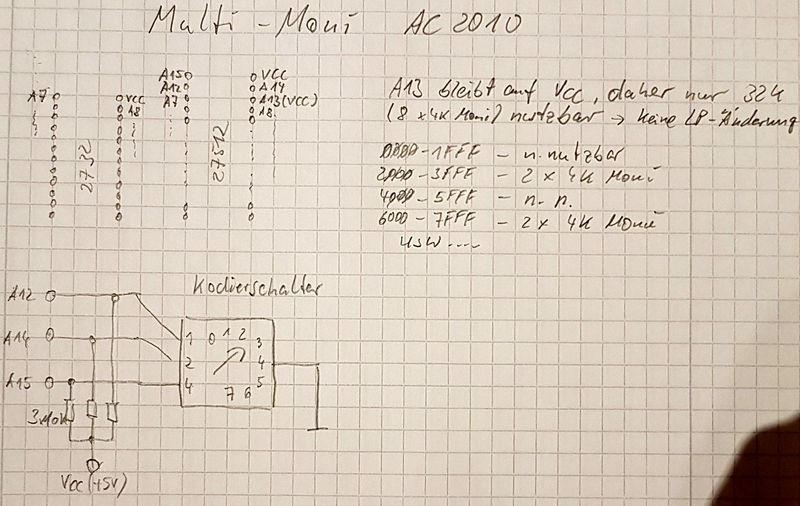 Multi-Moni AC 2010
A15 VCC
A12 A14
A7 A13 (VCC)
A8
A7 VCC
A8
2732
27512
A13 bleibt auf Vcc, daher nur 32k
(8 x 4K Moni) nutzbar → keine LP-Änderung
0000-1FFF - n. nutzbar
2000-3FFF - 2 x 4K Moni
4000-5FFF - n. n.
6000-7FFF - 2 x 4K Moni
usw....
Kodierschalter
A12
A14
A15
1 0 1 2 3
2 4
4 7 6 5
3x10K
Vcc (+5V)